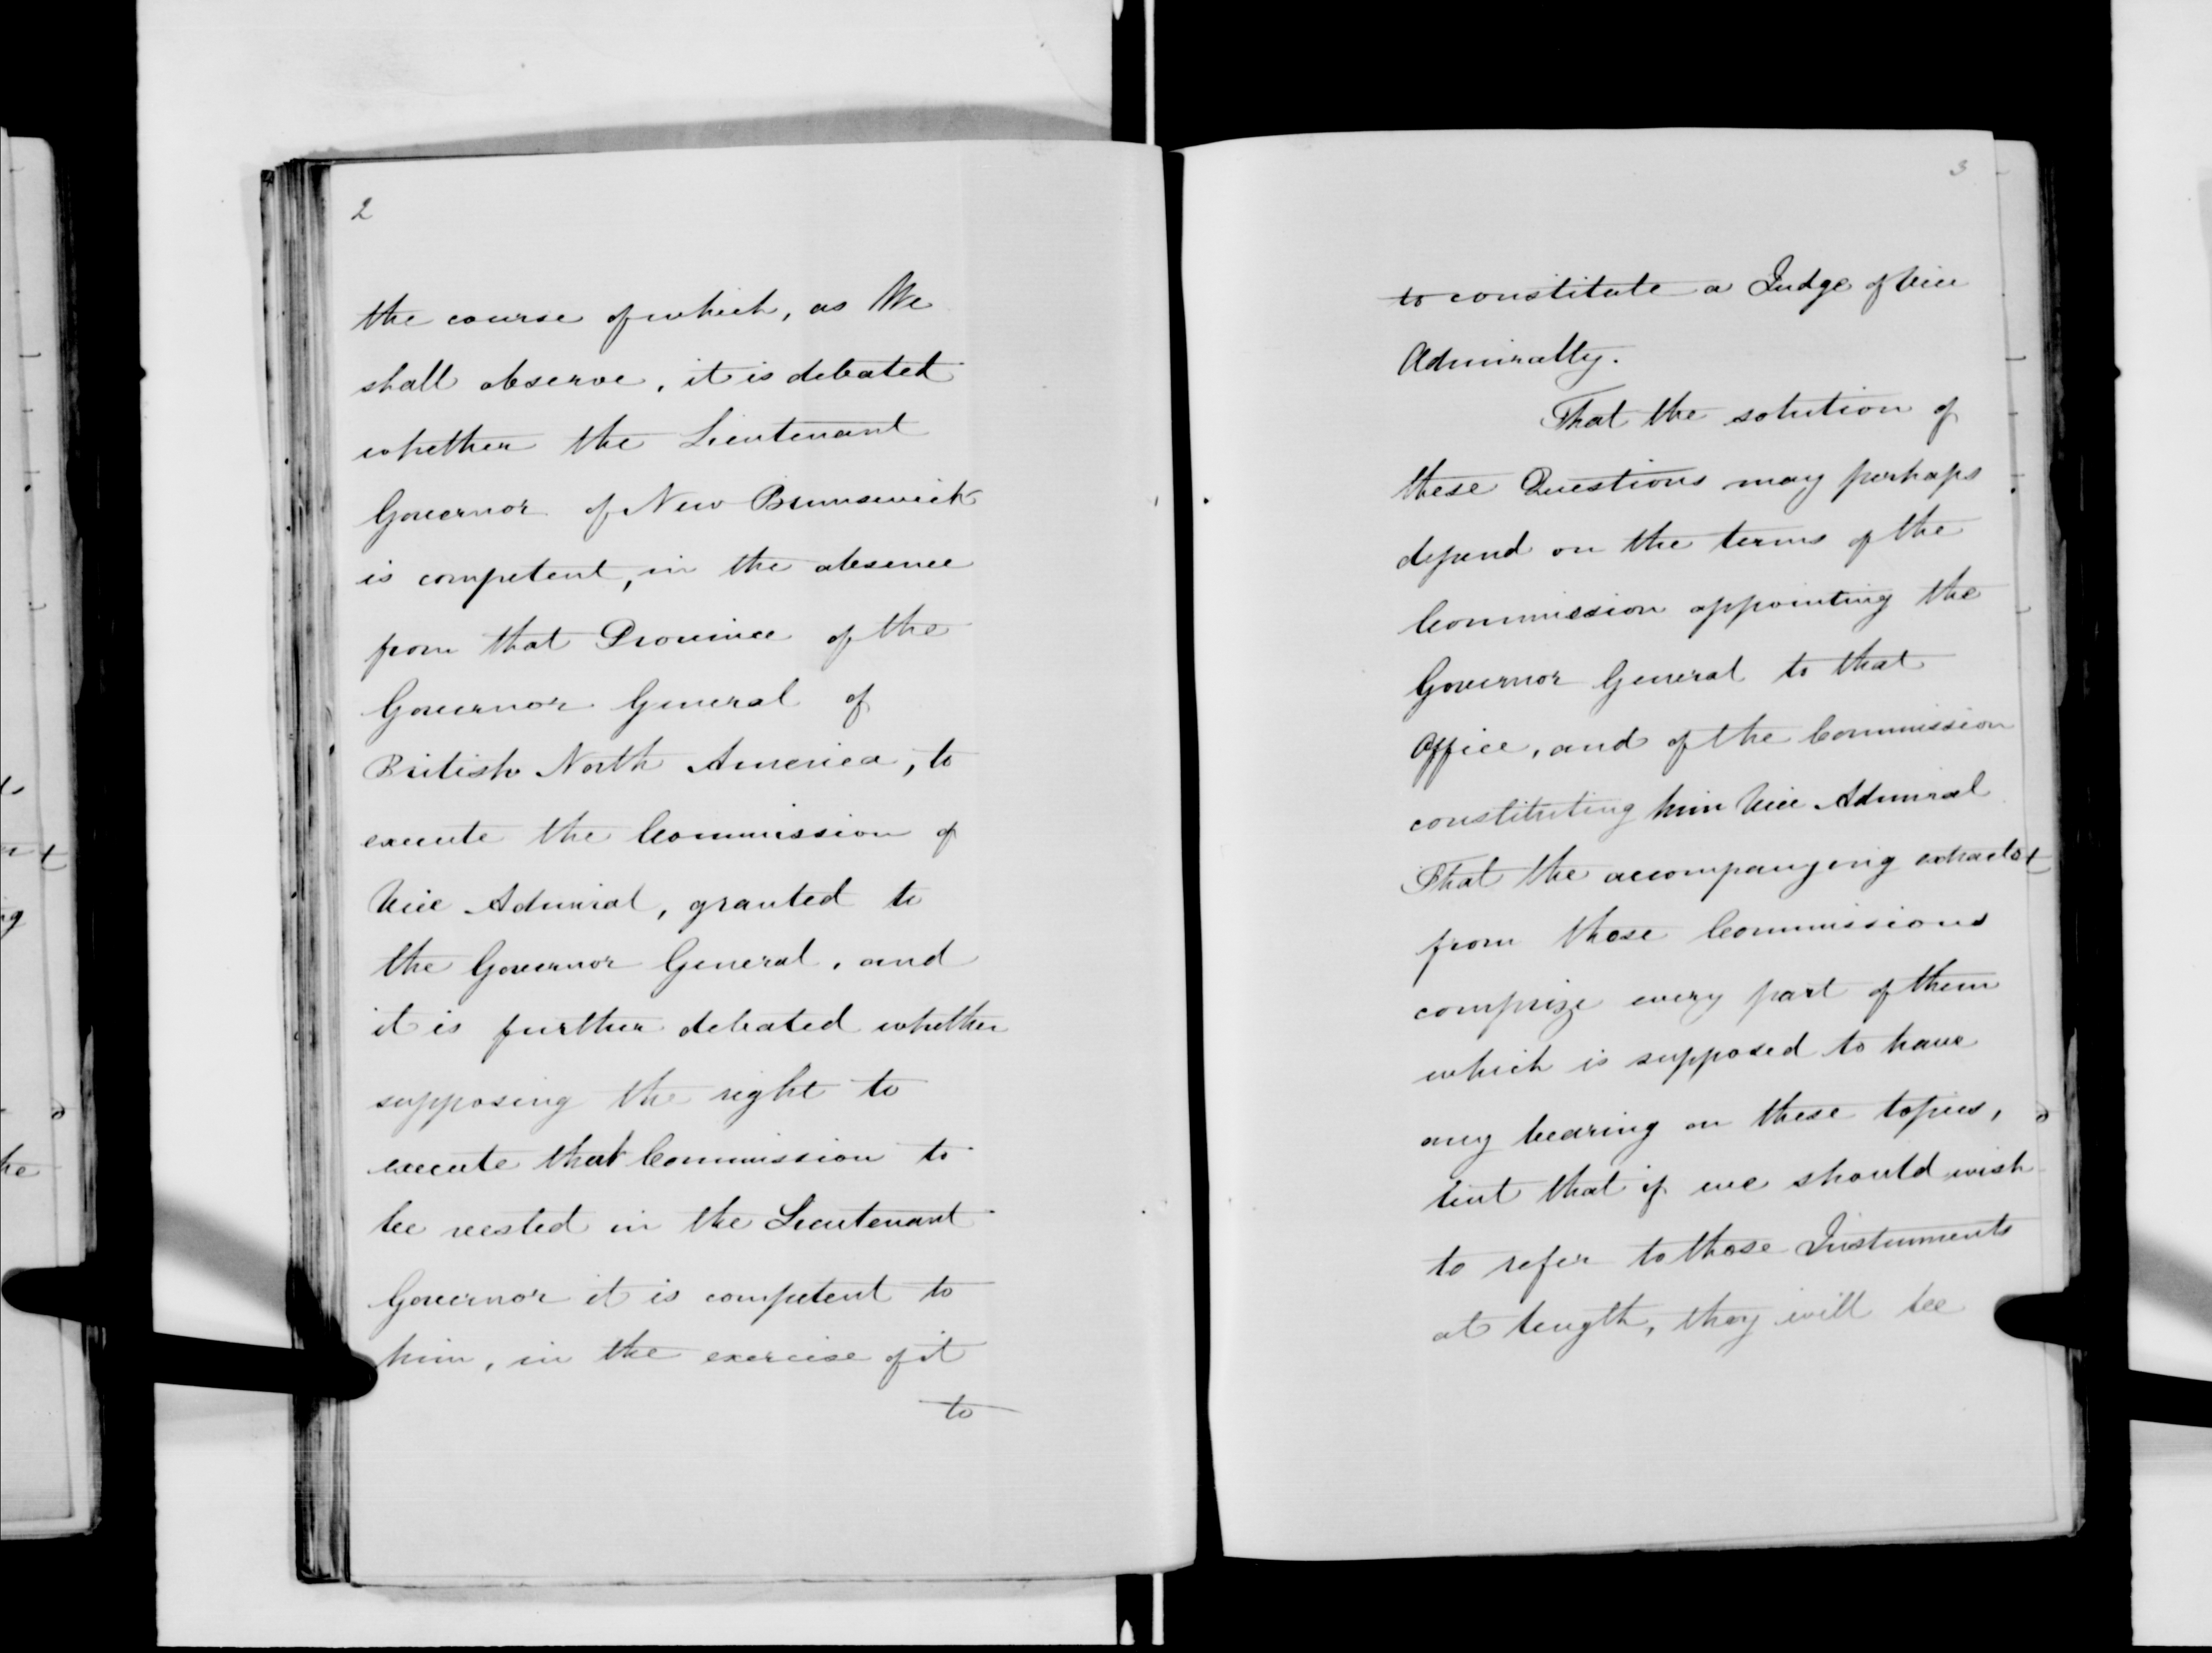 2
the course of which, as We
shall observe, it is debated
whether the Lieutenant
Governor of New Brunswick
is competent, in the absence
from that Province of the
Governor General of
British North America, to
execute the Commission of
Vice Admiral, granted to
the Governor General, and
it is further debated whether
supposing the right to
execute that Commission to
be vested in the Lieutenant
Governor it is competent to
him, in the exercise of it
to
3
to constitute a Judge of Vice
Admiralty.
That the solution of
these Questions may perhaps
depend on the terms of the
Commission appointing the
Governor General to that
Office, and of the Commission
constituting him Vice Admiral
That the accompanying extracts
from those Commissions
comprize every part of them
which is supposed to have
any bearing on these topics,
but that if we should wish
to refer to those Instruments
at length, they will be